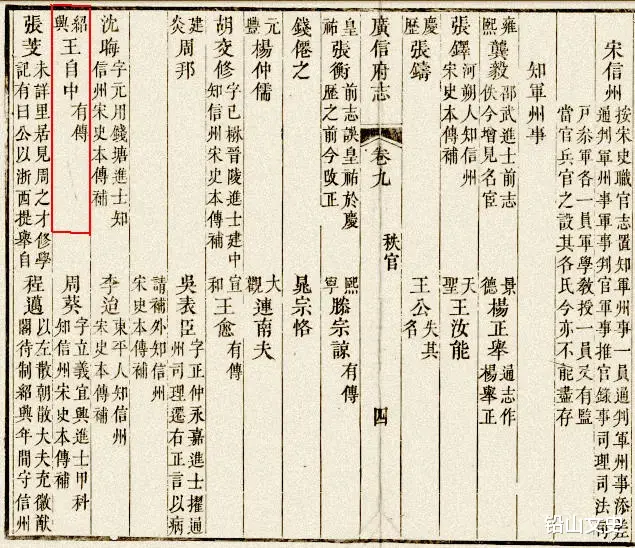 宋信州 按宋史職官志置知軍州事一員通判軍州事添差
通判軍州事軍事判官軍事推官錄事司理司法司
戶參軍各一員軍學教授一員又有監
當官兵官之設其各氏今亦不能盡存
知軍州事
雍熙 龔毅 邵武進士前志佚今增見名宦 景德 楊正舉 通志作楊舉正
張鐸 河朔人知信州宋史本傳補 天聖 王汝能
慶歷 張鑄 王公 失其名
廣信府志 卷九 秩官 四
皇祐 張衡 前志誤皇祐於慶歷之前今改正 熙寧 滕宗諒 有傳
錢僊之 晁宗恪
元豐 楊仲儒 大觀 連南夫
胡交修 字己楙晉陵進士建中知信州宋史本傳補 宣和 王愈 有傳
建炎 周邦 吳表臣 字正仲永嘉進士擢通州司理遷右正言以病
請補外知信州宋史本傳補
沈晦 字元用錢塘進士知信州宋史本傳補 李迨 東平人知信州宋史本傳補
紹興 王自中 有傳 周葵 字立義宜興進士甲科知信州宋史本傳補
張 未詳里居見周之才修學記有曰公以浙西提舉自 程邁 以左散朝散大夫充徽猷閣待制紹興年間守信州
铅山文史